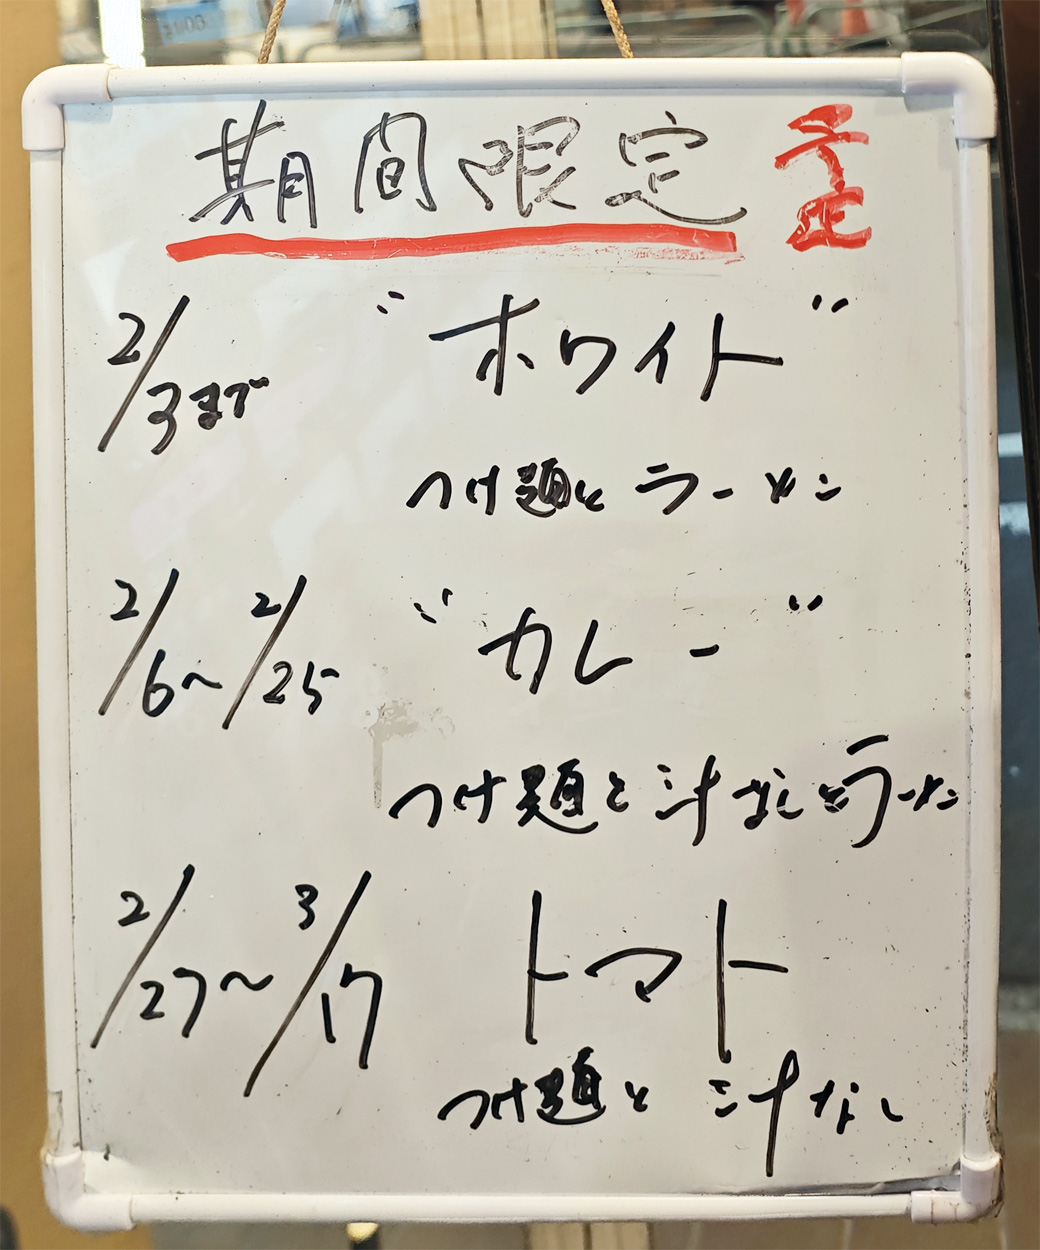 期間限定 予定
2/3まで "ホワイト"
つけ麺とラーメン
2/6〜2/25 "カレー"
つけ麺と汁なしとラーメン
2/27〜3/17 トマト
つけ麺と汁なし